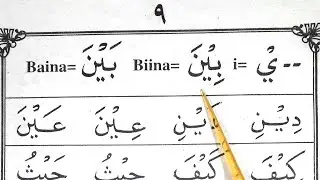 ٩
--يْ =i بِيْنَ =Biina بَيْنَ =Baina
دِيْنِ دَيْنِ عِيْنَ عَيْنَ
كِيْفَ كَيْفَ حِيْثُ حَيْثُ